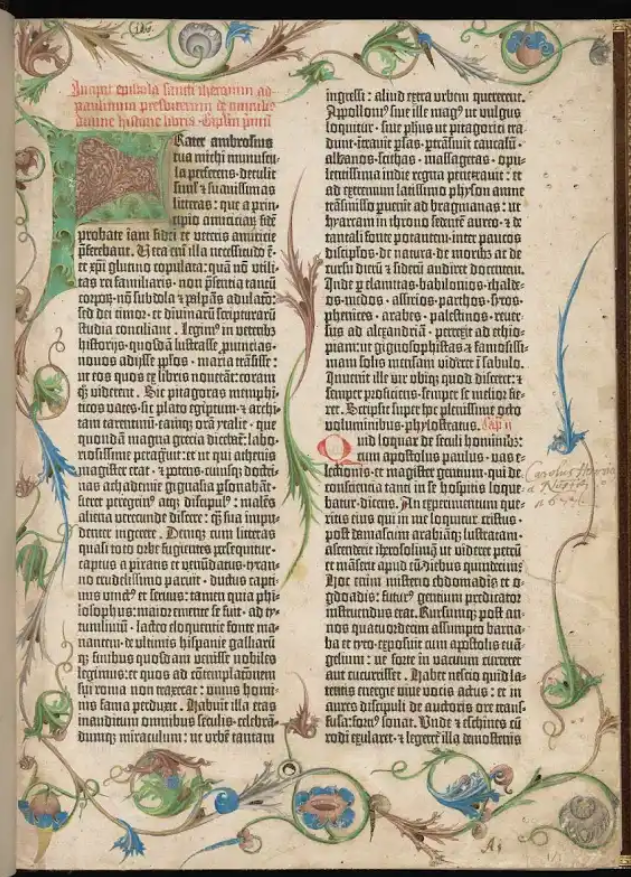 Incipit epistola sancti iheronimi ad
paulinum presbiterum de omnibus
diuine historie libris · Capitulum primum
Frater ambrosius
tua michi munuscu-
la perferens · detulit
simul ⁊ suauissimas
litteras : que a prin-
cipio amiciciarum · fidem
probate iam fidei et veteris amicicie
preferebant. Uera enim illa necessitudo est ·
et xpi glutino copulata : quam non vtili-
tas rei familiaris · non presentia tantum
corporum · non subdola ⁊ palpans adulacio :
sed dei timor · et diuinarum scripturarum
studia conciliant. Legimus in veteribus
historijs · quosdam lustrasse prouincias ·
nouos adijsse populos · maria transisse :
ut eos quos ex libris nouerant : coram
quoque viderent. Sic pitagoras memphi-
ticos vates · sic plato egiptum · ⁊ archi-
tam tarentinum · eamque oram ytalie · que
quondam magna grecia dicebatur : labo-
riosissime peragrauit : et ut qui athenis
magister erat · ⁊ potens · cuiusque doctri-
nas achademie gignasia personabant ·
fieret peregrinus atque discipulus : malens
aliena verecunde discere : quam sua impu-
denter ingerere. Denique cum litteras
quasi toto orbe fugientes persequitur ·
captus a piratis et venundatus · tyran-
no crudelissimo paruit · ductus capti-
uus vinctus et seruus : tamen quia phi-
losophus : maior emente se fuit · ad ty-
tumliuium · lacteo eloquentie fonte ma-
nantem · de vltimis hispanie galliarumque
finibus quosdam venisse nobiles
legimus : et quos ad contemplationem
sui roma non traxerat : vnius homi-
nis fama perduxit. Habuit illa etas
inauditum omnibus seculis · celebran-
dumque miraculum : ut vrbem tantam
ingressi : aliud extra vrbem quererent.
Appollonius siue ille magus ut vulgus
loquitur · siue philosophus ut pitagorici tra-
dunt · intrauit persas · pertransiuit caucasum ·
albanos · scithas · massagetas · opu-
lentissima indie regna penetrauit : et
ad extremum latissimo physon amne
transmisso peruenit ad bragmanas : ut
hyarcam in throno sedentem aureo · ⁊ de
tantali fonte potantem · inter paucos
discipulos · de natura · de moribus ac de
cursu dierum ⁊ siderum audiret docentem.
Inde per elamitas · babilonios · chalde-
os · medos · assirios · parthos · siros ·
phenices · arabes · palestinos · reuer-
sus ad alexandriam · perrexit ad ethio-
piam : ut gignosophistas ⁊ famosissi-
mam solis mensam videret in sabulo.
Inuenit ille vir vbique quod disceret : ⁊
semper proficiens · semper se melior fie-
ret. Scripsit super hoc plenissime octo
voluminibus · phylostratus. Cap. ii
Quid loquar de seculi hominibus :
cum apostolus paulus · vas e-
lectionis · et magister gentium · qui de
consciencia tanti in se hospitis loque-
batur · dicens. An experimentum que-
ritis eius qui in me loquitur cristus ·
post damascum arabiamque lustratam ·
ascenderit iherosolimam ut videret petrum
et manserit apud eum diebus quindecim :
Hoc enim misterio ebdomadis et o-
gdoadis : futurus gentium predicator
instruendus erat. Rursumque post an-
nos quatuordecim assumpto barna-
ba et tyto · exposuit cum apostolis euan-
gelium : ne forte in vacuum curreret
aut cucurrisset. Habet nescio quid la-
tentis energie viue vocis actus : et in
aures discipuli de auctoris ore trans-
fusa : fortius sonat. Unde ⁊ eschines cum
rodi exularet · ⁊ legeretur illa demostenis
Carolus